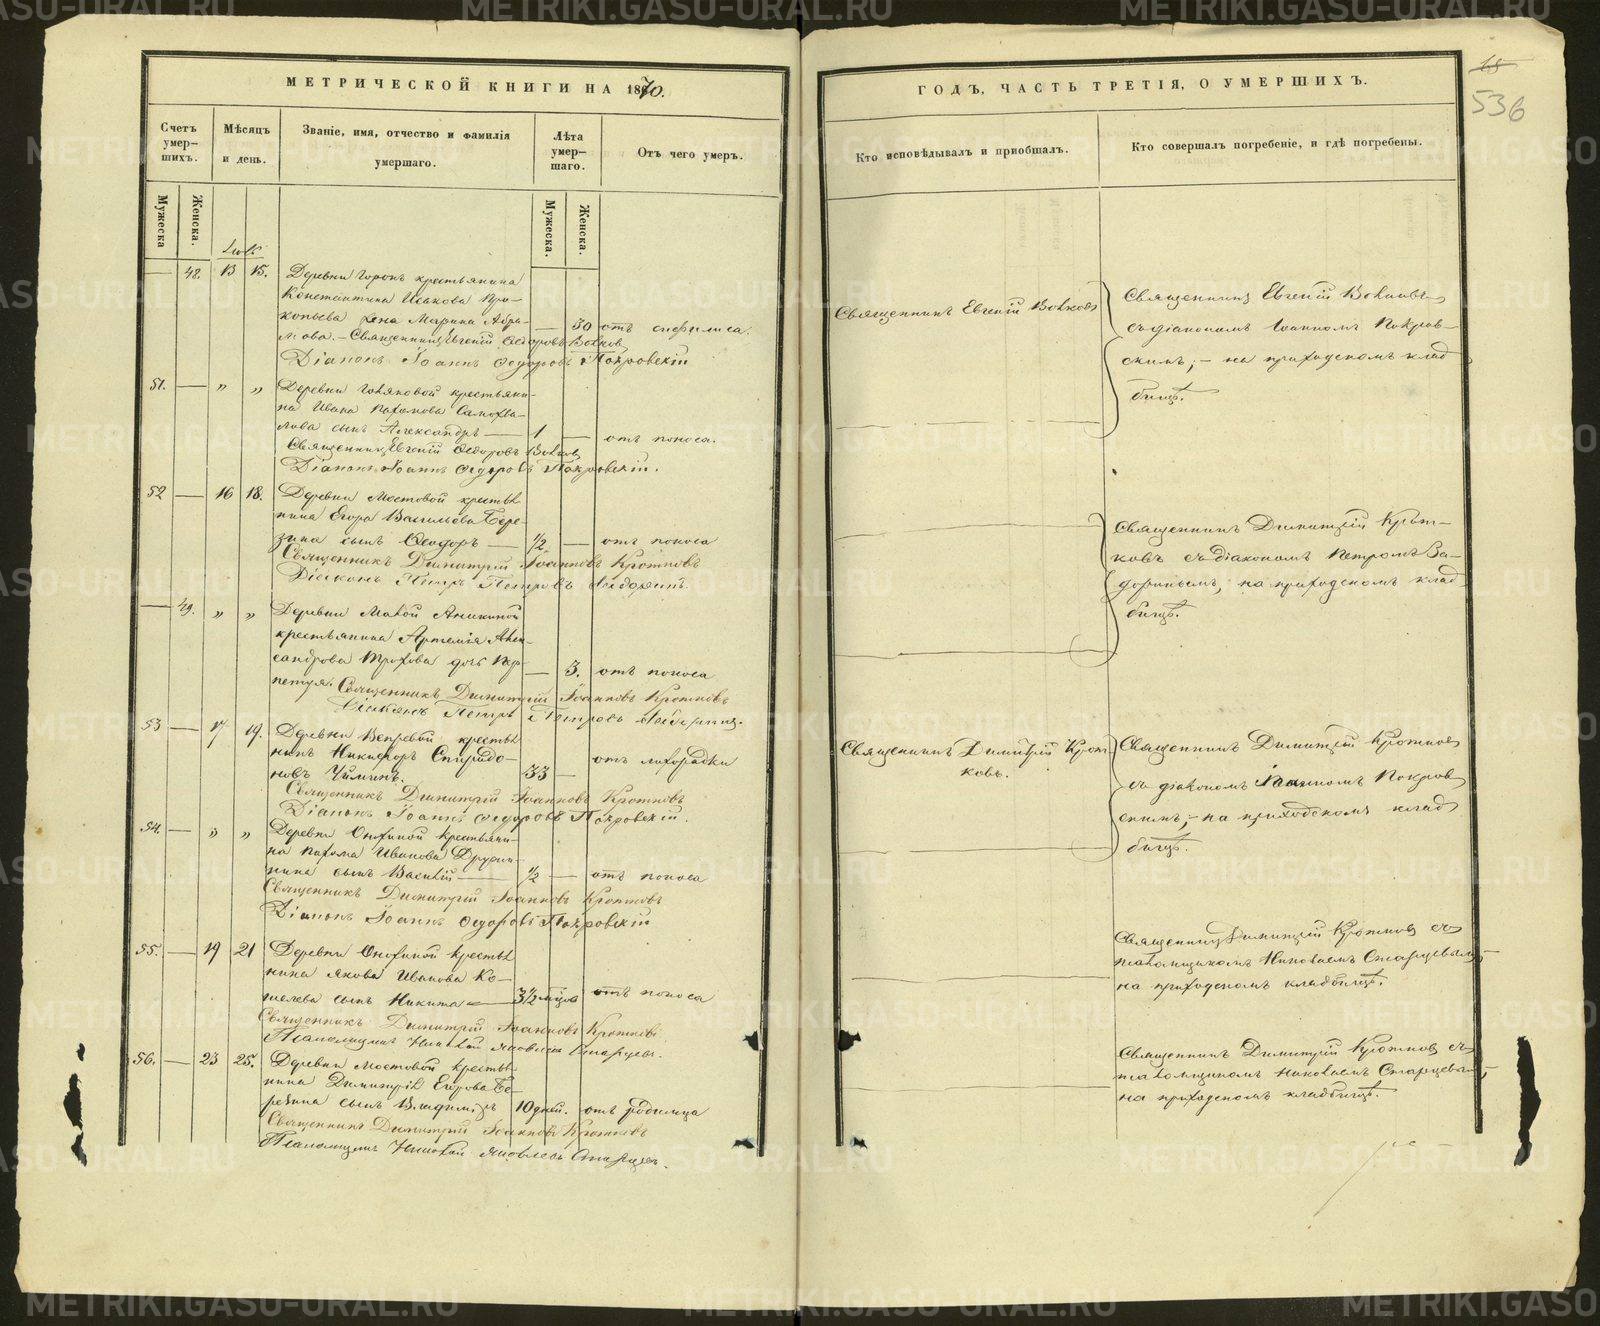 МЕТРИЧЕСКОЙ КНИГИ НА 1870.
Счетъ умер-шихъ.
Мѣсяцъ и день.
Званіе, имя, отчество и фамилія умершаго.
Лѣта умер-шаго.
Отъ чего умеръ.
Мужеска
Женска.
Мужеска.
Женска.
48. 13 15. Деревни крестьянина
Константина Исакова Про-
копьева жена Марина Абра- — 50 отъ сифилиса.
мова. – Священникъ Евгеній Ѳедоровъ Волковъ
Діаконъ Іоаннъ Ѳедоровъ Покровскій
51. — „ „ Деревни крестьяни-
на Ивана Пахомова Самохва-
лова сынъ Александръ — 1 — отъ поноса.
Священникъ Евгеній Ѳедоровъ Волковъ
Діаконъ Іоаннъ Ѳедоровъ Покровскій.
52 — 16 18. Деревни Мостовой крестья
нина Егора Васильева Бере-
зина сынъ Ѳеодоръ — 1/2 — отъ поноса
Священникъ Димитрій Іоанновъ Кротковъ
Діаконъ Петръ Петровъ
— 49. „ „ Деревни Малой Аникиной
крестьянина Артемія Алек-
сандрова Трофова дочь Пер- — 3. отъ поноса
петуя. Священникъ Димитрій Іоанновъ Кротковъ
Діаконъ Петръ Петровъ
53 — 17 19. Деревни крестья
нинъ Никифоръ Спиридо-
новъ 33 — отъ лихорадки
Священникъ Димитрій Іоанновъ Кротковъ
Діаконъ Іоаннъ Ѳедоровъ Покровскій.
54. — „ „ Деревни крестьяни-
на Пахома Иванова Дружи-
нина сынъ Василій — 1/2 — отъ поноса
Священникъ Димитрій Іоанновъ Кротковъ
Діаконъ Іоаннъ Ѳедоровъ Покровскій
55. — 19 21 Деревни крестья
нина Якова Иванова Ко-
шелева сынъ Никита — 3 1/2 отъ поноса
Священникъ Димитрій Іоанновъ Кротковъ
Псаломщикъ Николай Яковлевъ Старцевъ.
56. — 23 25. Деревни Мостовой крестья
нина Димитрія Егорова Бе-
резина сынъ Владиміръ 10 дней. отъ родимца
Священникъ Димитрій Іоанновъ Кротковъ
Псаломщикъ Николай Яковлевъ Старцевъ.
ГОДЪ, ЧАСТЬ ТРЕТІЯ, О УМЕРШИХЪ.
536
Кто исповѣдывалъ и пріобщалъ.
Кто совершалъ погребеніе, и гдѣ погребены.
Священникъ Евгеній Волковъ
Священникъ Евгеній Волковъ
съ діакономъ Іоанномъ Покров-
скимъ; – на приходскомъ клад
бищѣ.
Священникъ Димитрій Крот-
ковъ съ діакономъ Петромъ
на приходскомъ клад
бищѣ.
Священникъ Димитрій Крот
ковъ.
Священникъ Димитрій Кротковъ
съ діакономъ Іоанномъ Покров
скимъ; – на приходскомъ клад
бищѣ.
Священникъ Димитрій Кротковъ съ
псаломщикомъ Николаемъ Старцевымъ,
на приходскомъ кладбищѣ.
Священникъ Димитрій Кротковъ съ
псаломщикомъ Николаемъ Старцевымъ,
на приходскомъ кладбищѣ.
METRIKI.GASO-URAL.RU